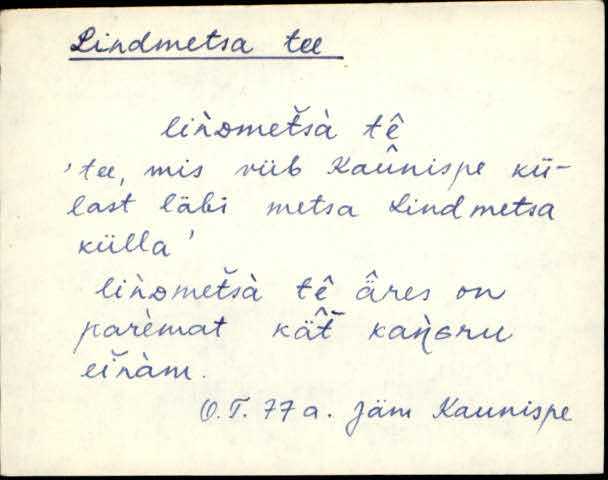 Lindmetsa tee
lǐǹᴅmeťsà tê
'tee, mis viib Kaûnispe kü-
last läbi metsa Lindmetsa
külla'
lǐǹᴅmeťsà tê âres on
parèmat kät̂̆ kaǹɢru
eǐnàm.
O.T. 77 a. Jäm Kaunispe